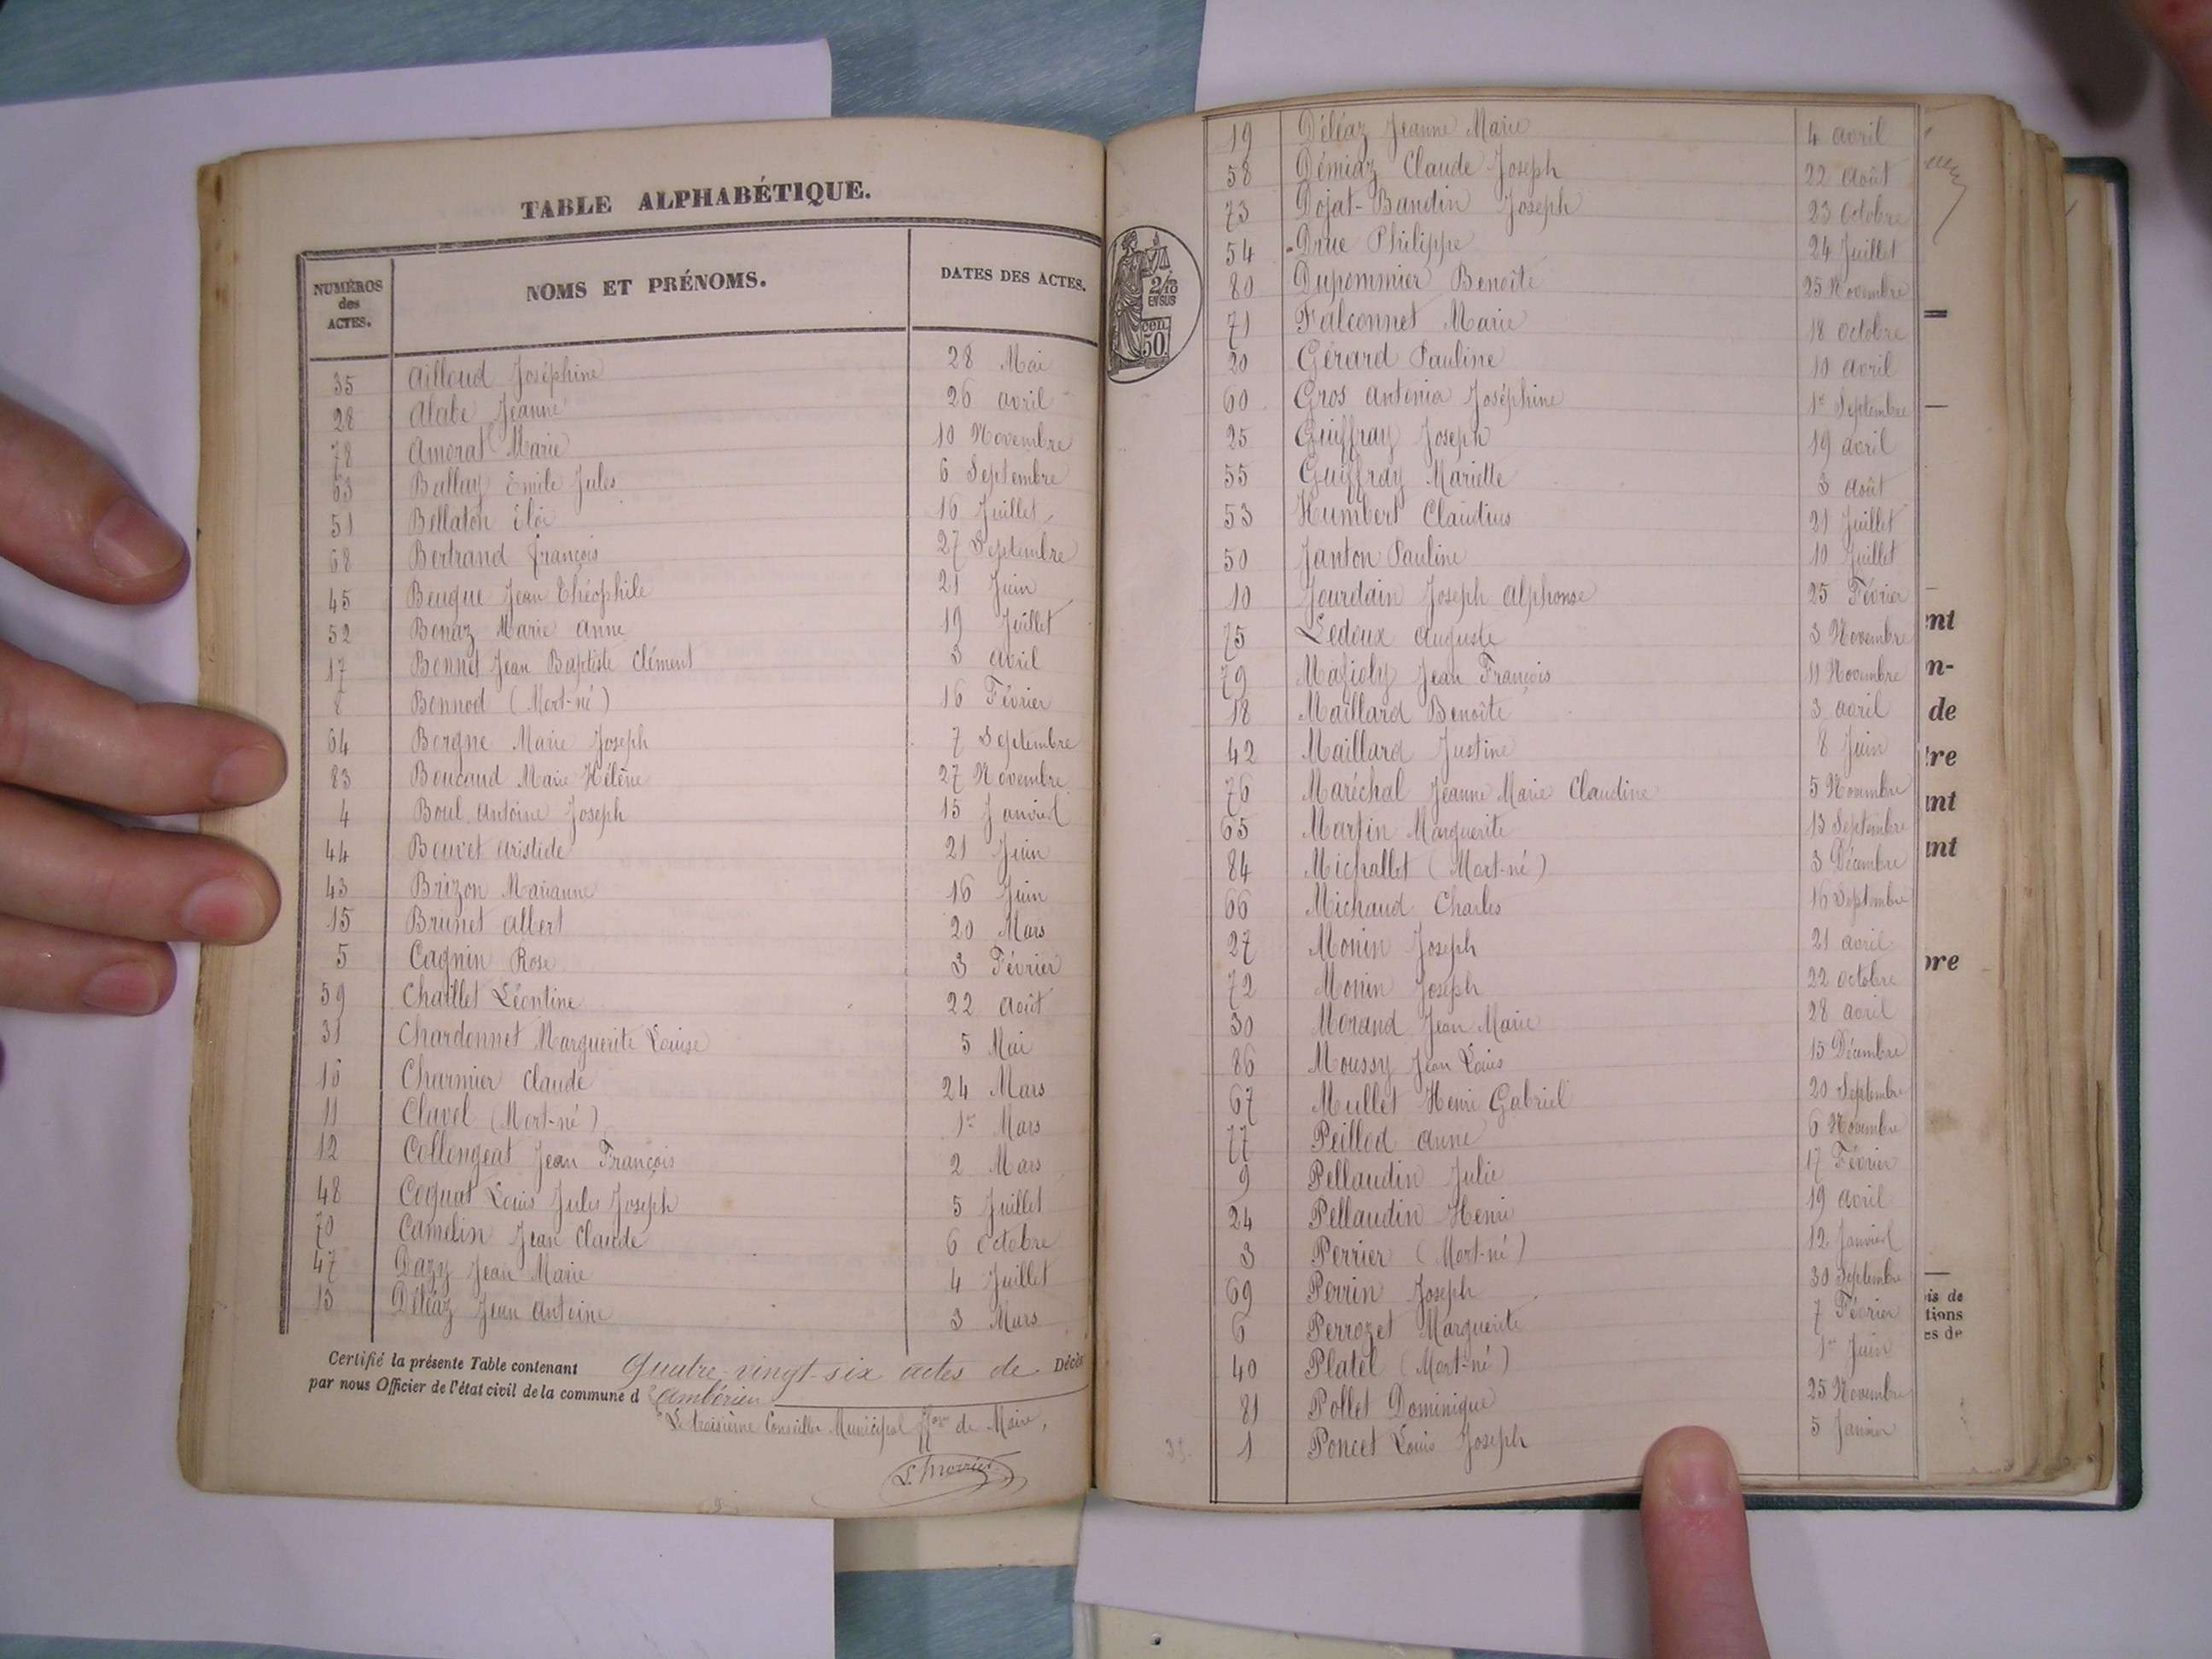 TABLE ALPHABÉTIQUE.
NUMÉROS des ACTES. NOMS ET PRÉNOMS. DATES DES ACTES.
35 Ailloud Joséphine 28 Mai
28 Alabe Jeanne 26 avril
78 Amorat Marie 10 Novembre
63 Ballay Emile Jules 6 Septembre
51 Bellaton Eloi 16 Juillet
68 Bertrand François 27 Septembre
45 Beugue Jean Théophile 21 Juin
52 Bonaz Marie Anne 19 Juillet
17 Bonnet Jean Baptiste Clément 3 avril
8 Bonnod (Mort-né) 16 Février
64 Borgne Marie Joseph 7 Septembre
83 Boucaud Marie Hélène 27 Novembre
4 Boul Antoine Joseph 15 Janvier
44 Bouvet Aristide 21 Juin
43 Brizon Marianne 16 Juin
15 Brunet Albert 20 Mars
5 Cagnin Rose 3 Février
59 Chaillet Léontine 22 Août
31 Chardonnet Marguerite Louise 5 Mai
16 Charmier Claude 24 Mars
11 Clavel (Mort-né) 1er Mars
12 Collongeat Jean François 2 Mars
48 Coquat Louis Jules Joseph 5 Juillet
70 Camelin Jean Claude 6 Octobre
47 Dazy Jean Marie 4 Juillet
13 Déléaz Jean Antoine 3 Mars
Certifié la présente Table contenant Quatre-vingt-six actes de Décès
par nous Officier de l'état civil de la commune d'Ambérieu
Le troisième Conseiller Municipal ffons de Maire,
2/10 EN SUS
50 cen.
19 Déléaz Jeanne Marie 4 avril
58 Démiaz Claude Joseph 22 Août
73 Dojat-Bandin Joseph 23 Octobre
54 Drue Philippe 24 Juillet
80 Dupommier Benoîte 25 Novembre
71 Falconnet Marie 18 octobre
20 Gérard Pauline 10 avril
60 Gros Antonia Joséphine 1er Septembre
25 Guiffray Joseph 19 avril
55 Guiffray Mariette 3 Août
53 Humbert Claudius 21 Juillet
50 Janton Pauline 10 Juillet
10 Jourdain Joseph Alphonse 25 Février
75 Ledoux Auguste 3 Novembre
79 Mafioly Jean François 11 Novembre
18 Maillard Benoîte 3 avril
42 Maillard Justine 8 Juin
76 Maréchal Jeanne Marie Claudine 5 Novembre
65 Martin Marguerite 13 Septembre
84 Michallet (Mort-né) 3 Décembre
66 Michaud Charles 16 Septembre
27 Monin Joseph 21 avril
72 Monin Joseph 22 octobre
30 Morand Jean Marie 28 avril
86 Moussy Jean Louis 15 Décembre
67 Mullet Henri Gabriel 20 Septembre
77 Peillod Anne 6 Novembre
9 Pellaudin Julie 17 Février
24 Pellaudin Henri 19 avril
3 Perrier (Mort-né) 12 Janvier
69 Perrin Joseph 30 Septembre
6 Perrozet Marguerite 7 Février
40 Platel (Mort-né) 1er Juin
81 Pollet Dominique 25 Novembre
1 Poncet Louis Joseph 5 Janvier